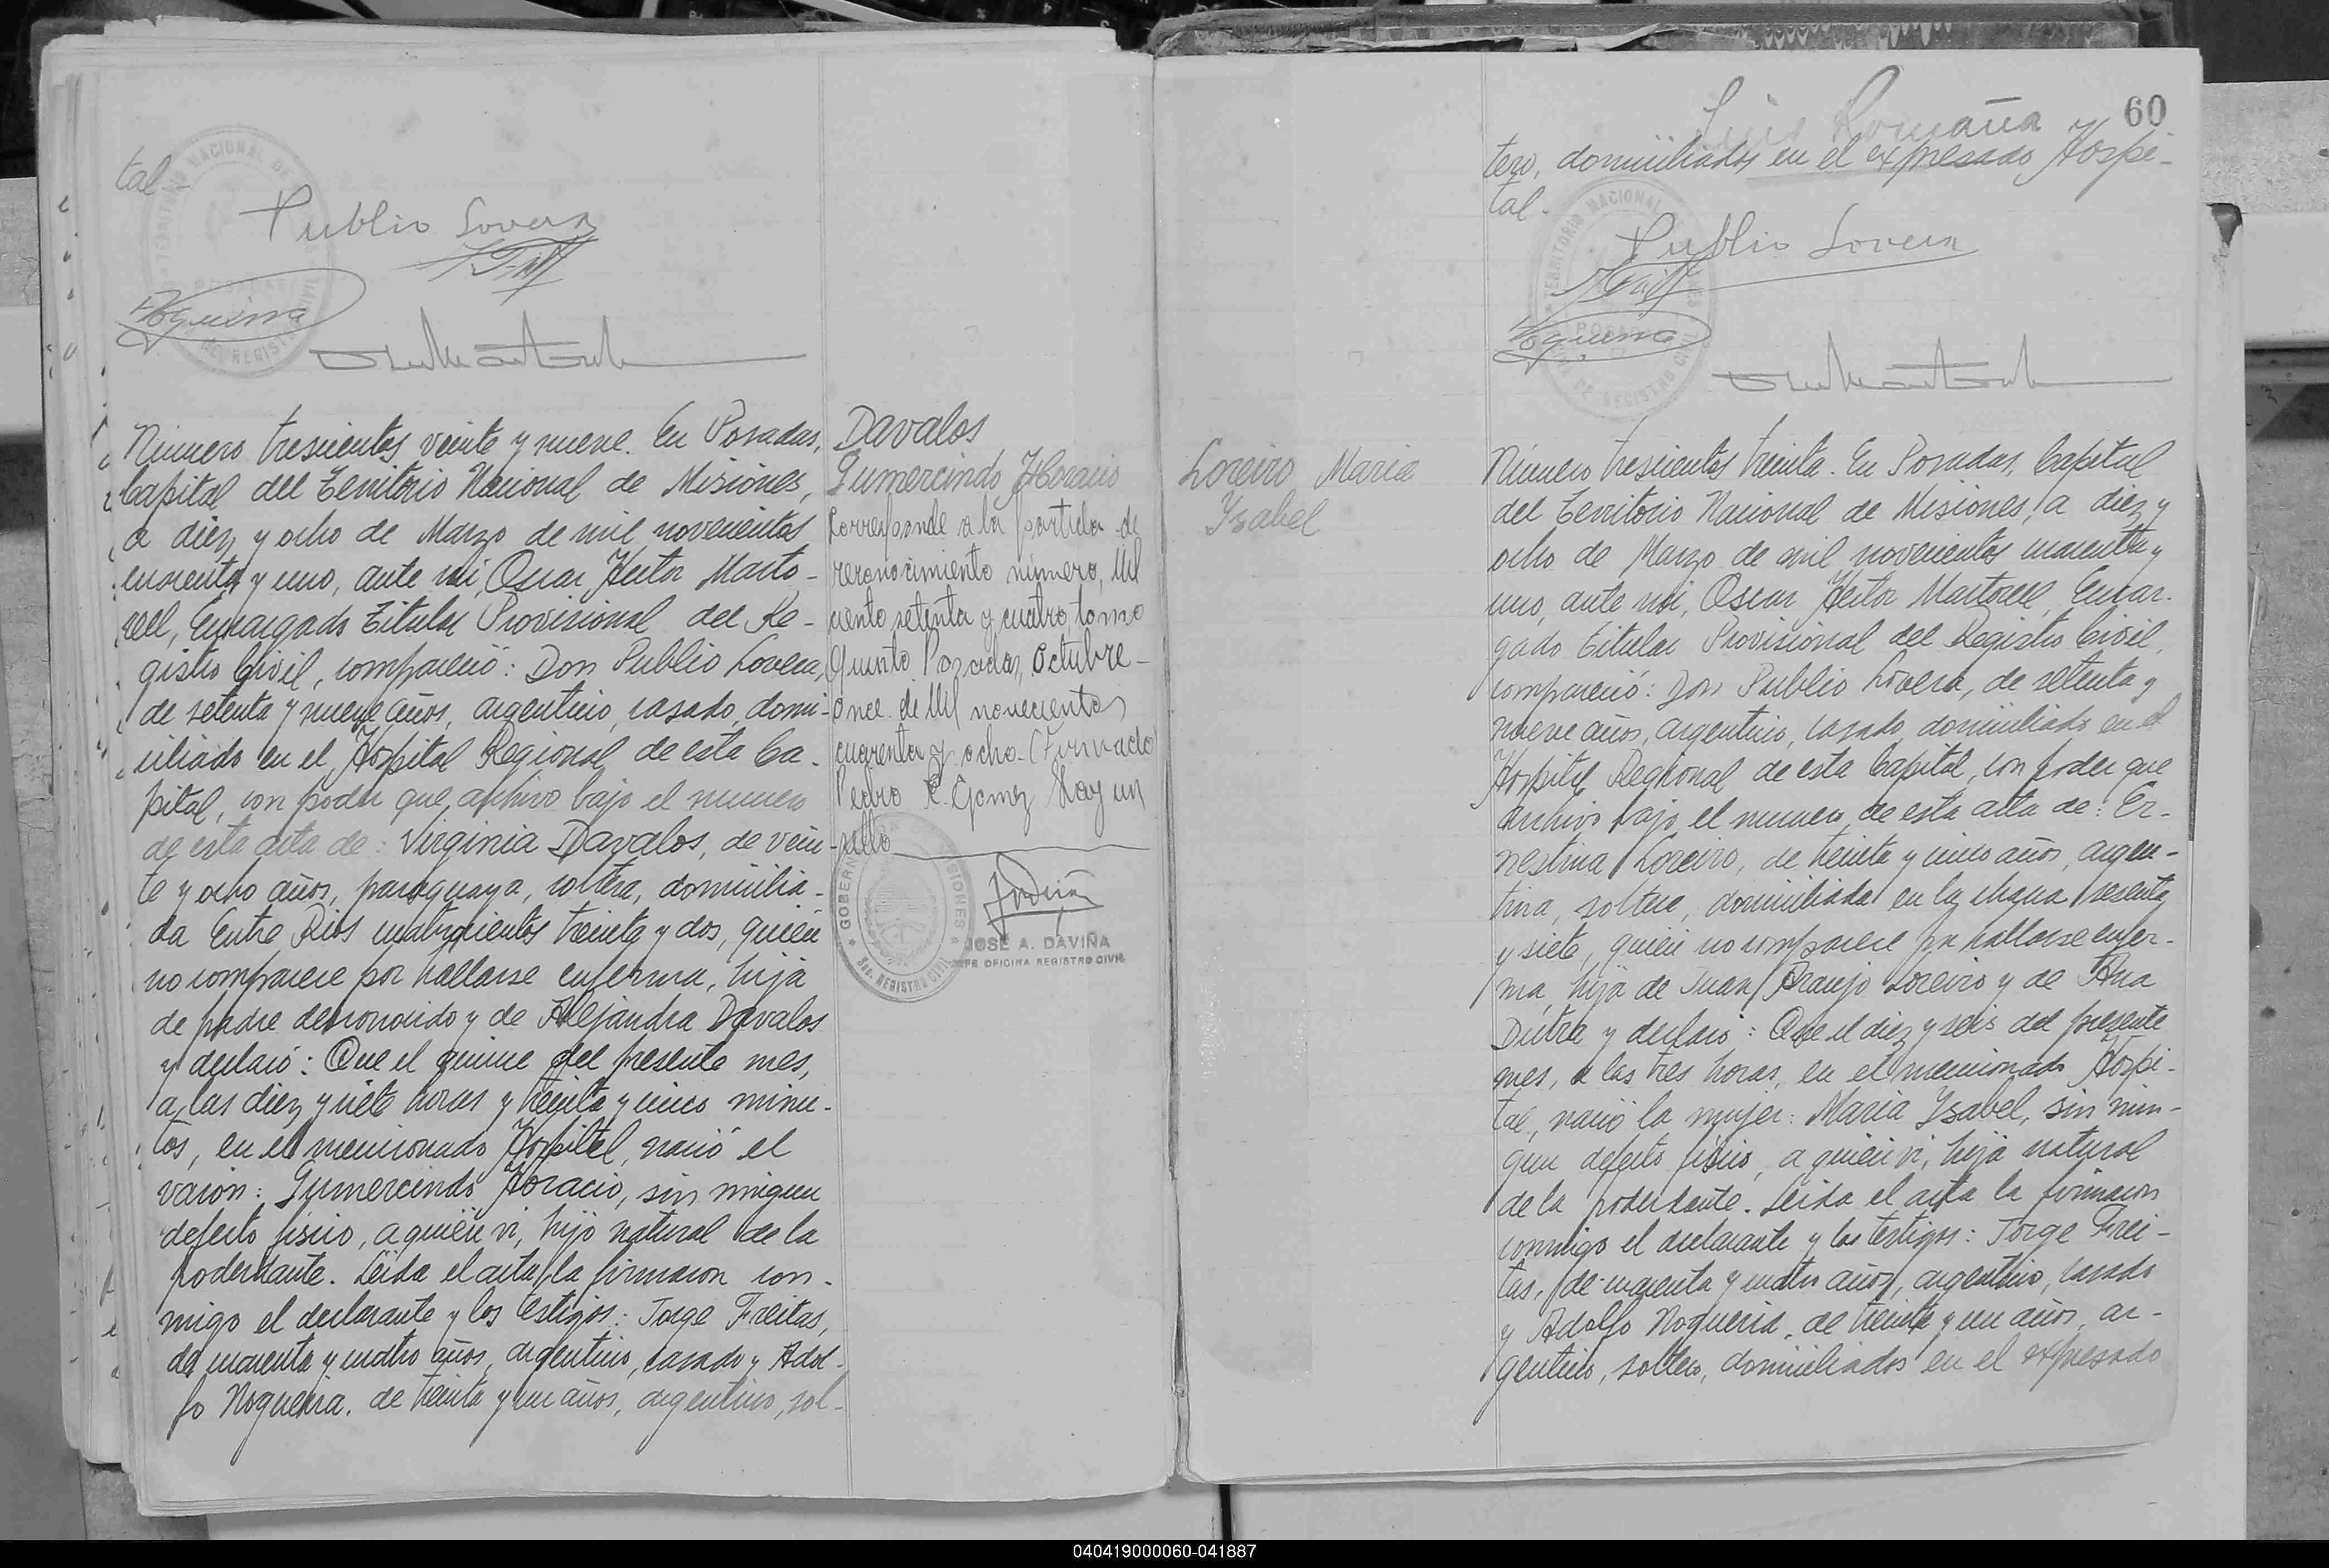 tal -
Publio Lovera
Nogueira
Número trescientos veinte y nueve. En Posadas,
Capital del Territorio Nacional de Misiones,
a diez y ocho de Marzo de mil novecientos
cuarenta y uno, ante mi, Oscar Hector Marto-
rell, Encargado Titular Provisional del Re-
gistro Civil, compareció: Don Publio Lovera,
de setenta y nueve años, argentino, casado, domi-
ciliado en el Hospital Regional de esta Ca-
pital, con poder que archivo bajo el numero
de esta acta de: Virginia Davalos, de vein-
te y ocho años, paraguaya, soltera, domicilia-
da Entre Rios cuatrocientos treinta y dos, quien
no comparece por hallarse enferma, hija
de padre desconocido y de Alejandra Davalos
y declaró: Que el quince del presente mes,
a las diez y siete horas y treinta y cinco minu-
tos, en el mencionado Hospital, nació el
varon: Gumercindo Horacio, sin ningun
defecto fisico, a quien vi, hijo natural de la
poderdante. Leida el acta la firmaron con-
migo el declarante y los testigos: Jorge Freitas,
de cuarenta y cuatro años, argentino, casado y Adol-
fo Nogueira, de treinta y un años, argentino, sol-
Davalos
Gumercindo Horacio
Corresponde a la partida de
reconocimiento número, Mil
ciento setenta y cuatro tomo
Quinto Posadas, Octubre -
once de Mil novecientos
cuarenta y ocho - (Firmado
Pedro R. Gomez Hay un
sello
JOSE A. DAVIÑA
JEFE OFICINA REGISTRO CIVIL
Luis Romaña
60
tero, domiciliados en el expresado Hospi-
tal -
Publio Lovera
Nogueira
Loreiro Maria
Ysabel
Número trescientos treinta. En Posadas, Capital
del Territorio Nacional de Misiones, a diez y
ocho de Marzo de mil novecientos cuarenta y
uno, ante mi, Oscar Hector Martorell, Encar-
gado Titular Provisional del Registro Civil,
compareció: Don Publio Lovera, de setenta y
nueve años, argentino, casado, domiciliado en el
Hospital Regional de esta Capital, con poder que
archivo bajo el numero de esta acta de: Er-
nestina Loreiro, de treinta y cinco años, argen-
tina, soltera, domiciliada en la chacra sesenta
y siete, quien no comparece por hallarse enfer-
ma, hija de Juan Araujo Loreiro y de Ana
Dutra y declaró: Que el diez y seis del presente
mes, a las tres horas, en el mencionado Hospi-
tal, nació la mujer: Maria Ysabel, sin nin-
gun defecto fisico, a quien vi, hija natural
de la poderdante. Leida el acta la firmaron
conmigo el declarante y los testigos: Jorge Frei-
tas, de cuarenta y cuatro años, argentino, casado
y Adolfo Nogueira, de treinta y un años, ar-
gentino, soltero, domiciliados en el expresado
040419000060-041887